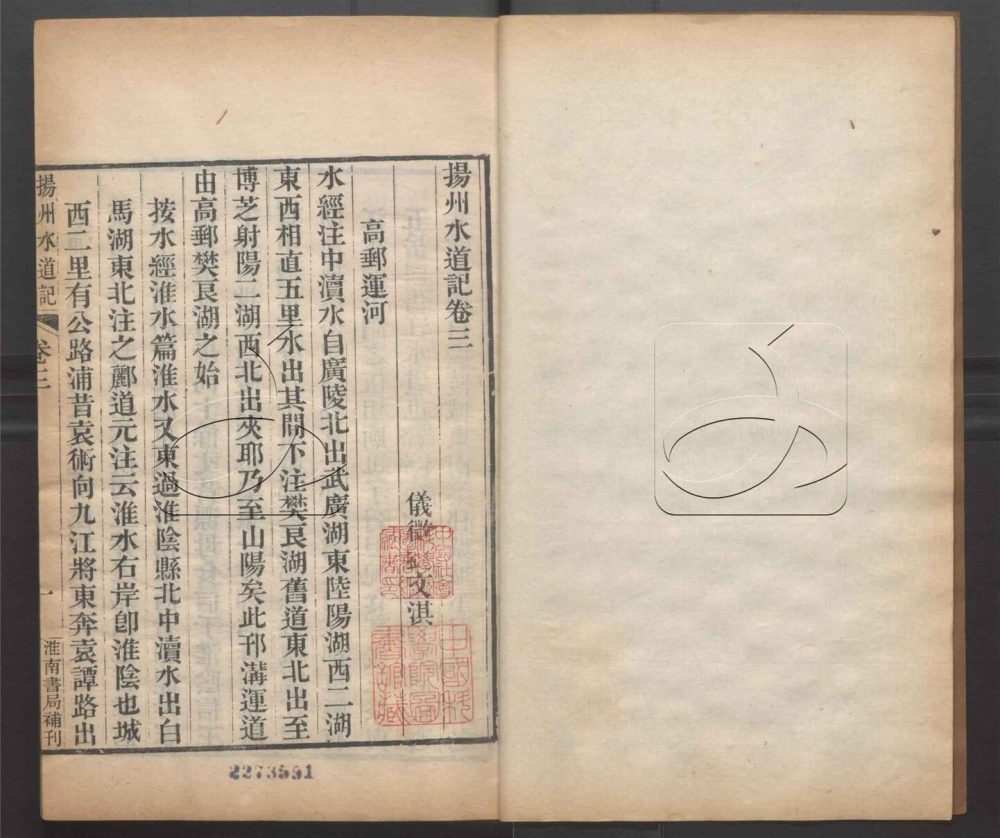 揚州水道記卷三
儀徵劉文淇
高郵運河
水經注中瀆水自廣陵北出武廣湖東陸陽湖西二湖
東西相直五里水出其間下注樊良湖舊道東北出至
博芝射陽二湖西北出夾耶乃至山陽矣此邗溝運道
由高郵樊良湖之始
按水經淮水篇淮水又東過淮陰縣北中瀆水出白
馬湖東北注之酈道元注云淮水右岸卽淮陰也城
西二里有公路浦昔袁術向九江將東奔袁譚路出
揚州水道記
卷三
一
淮南書局補刊
2273591